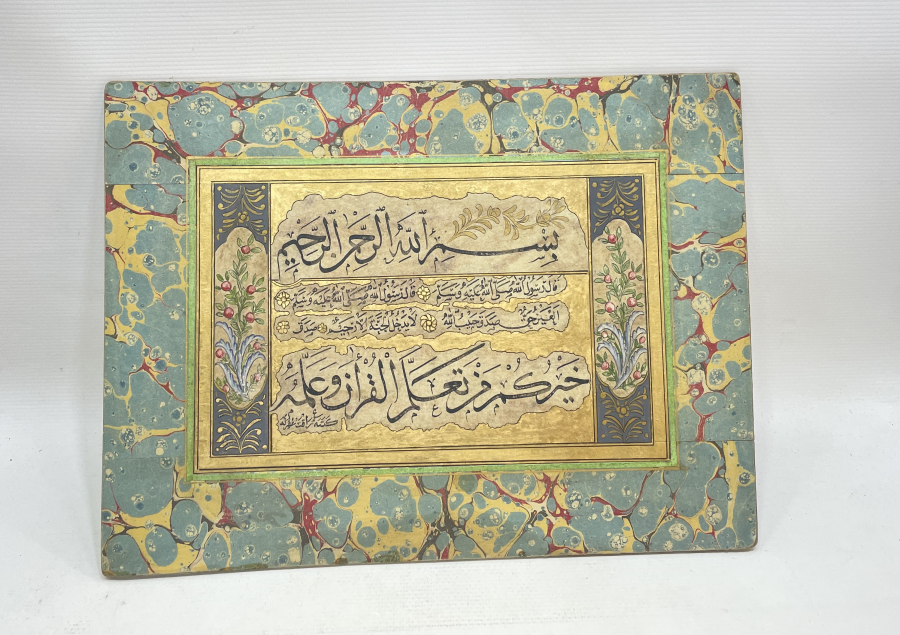 بسم الله الرحمن الرحيم
قال رسول الله صلى الله عليه وسلم قال رسول الله صلى الله عليه وسلم
العين حق صدق الله لا يدخل الجنة الا رحيم صدق
خيركم من تعلم القرآن وعلمه
كتبه